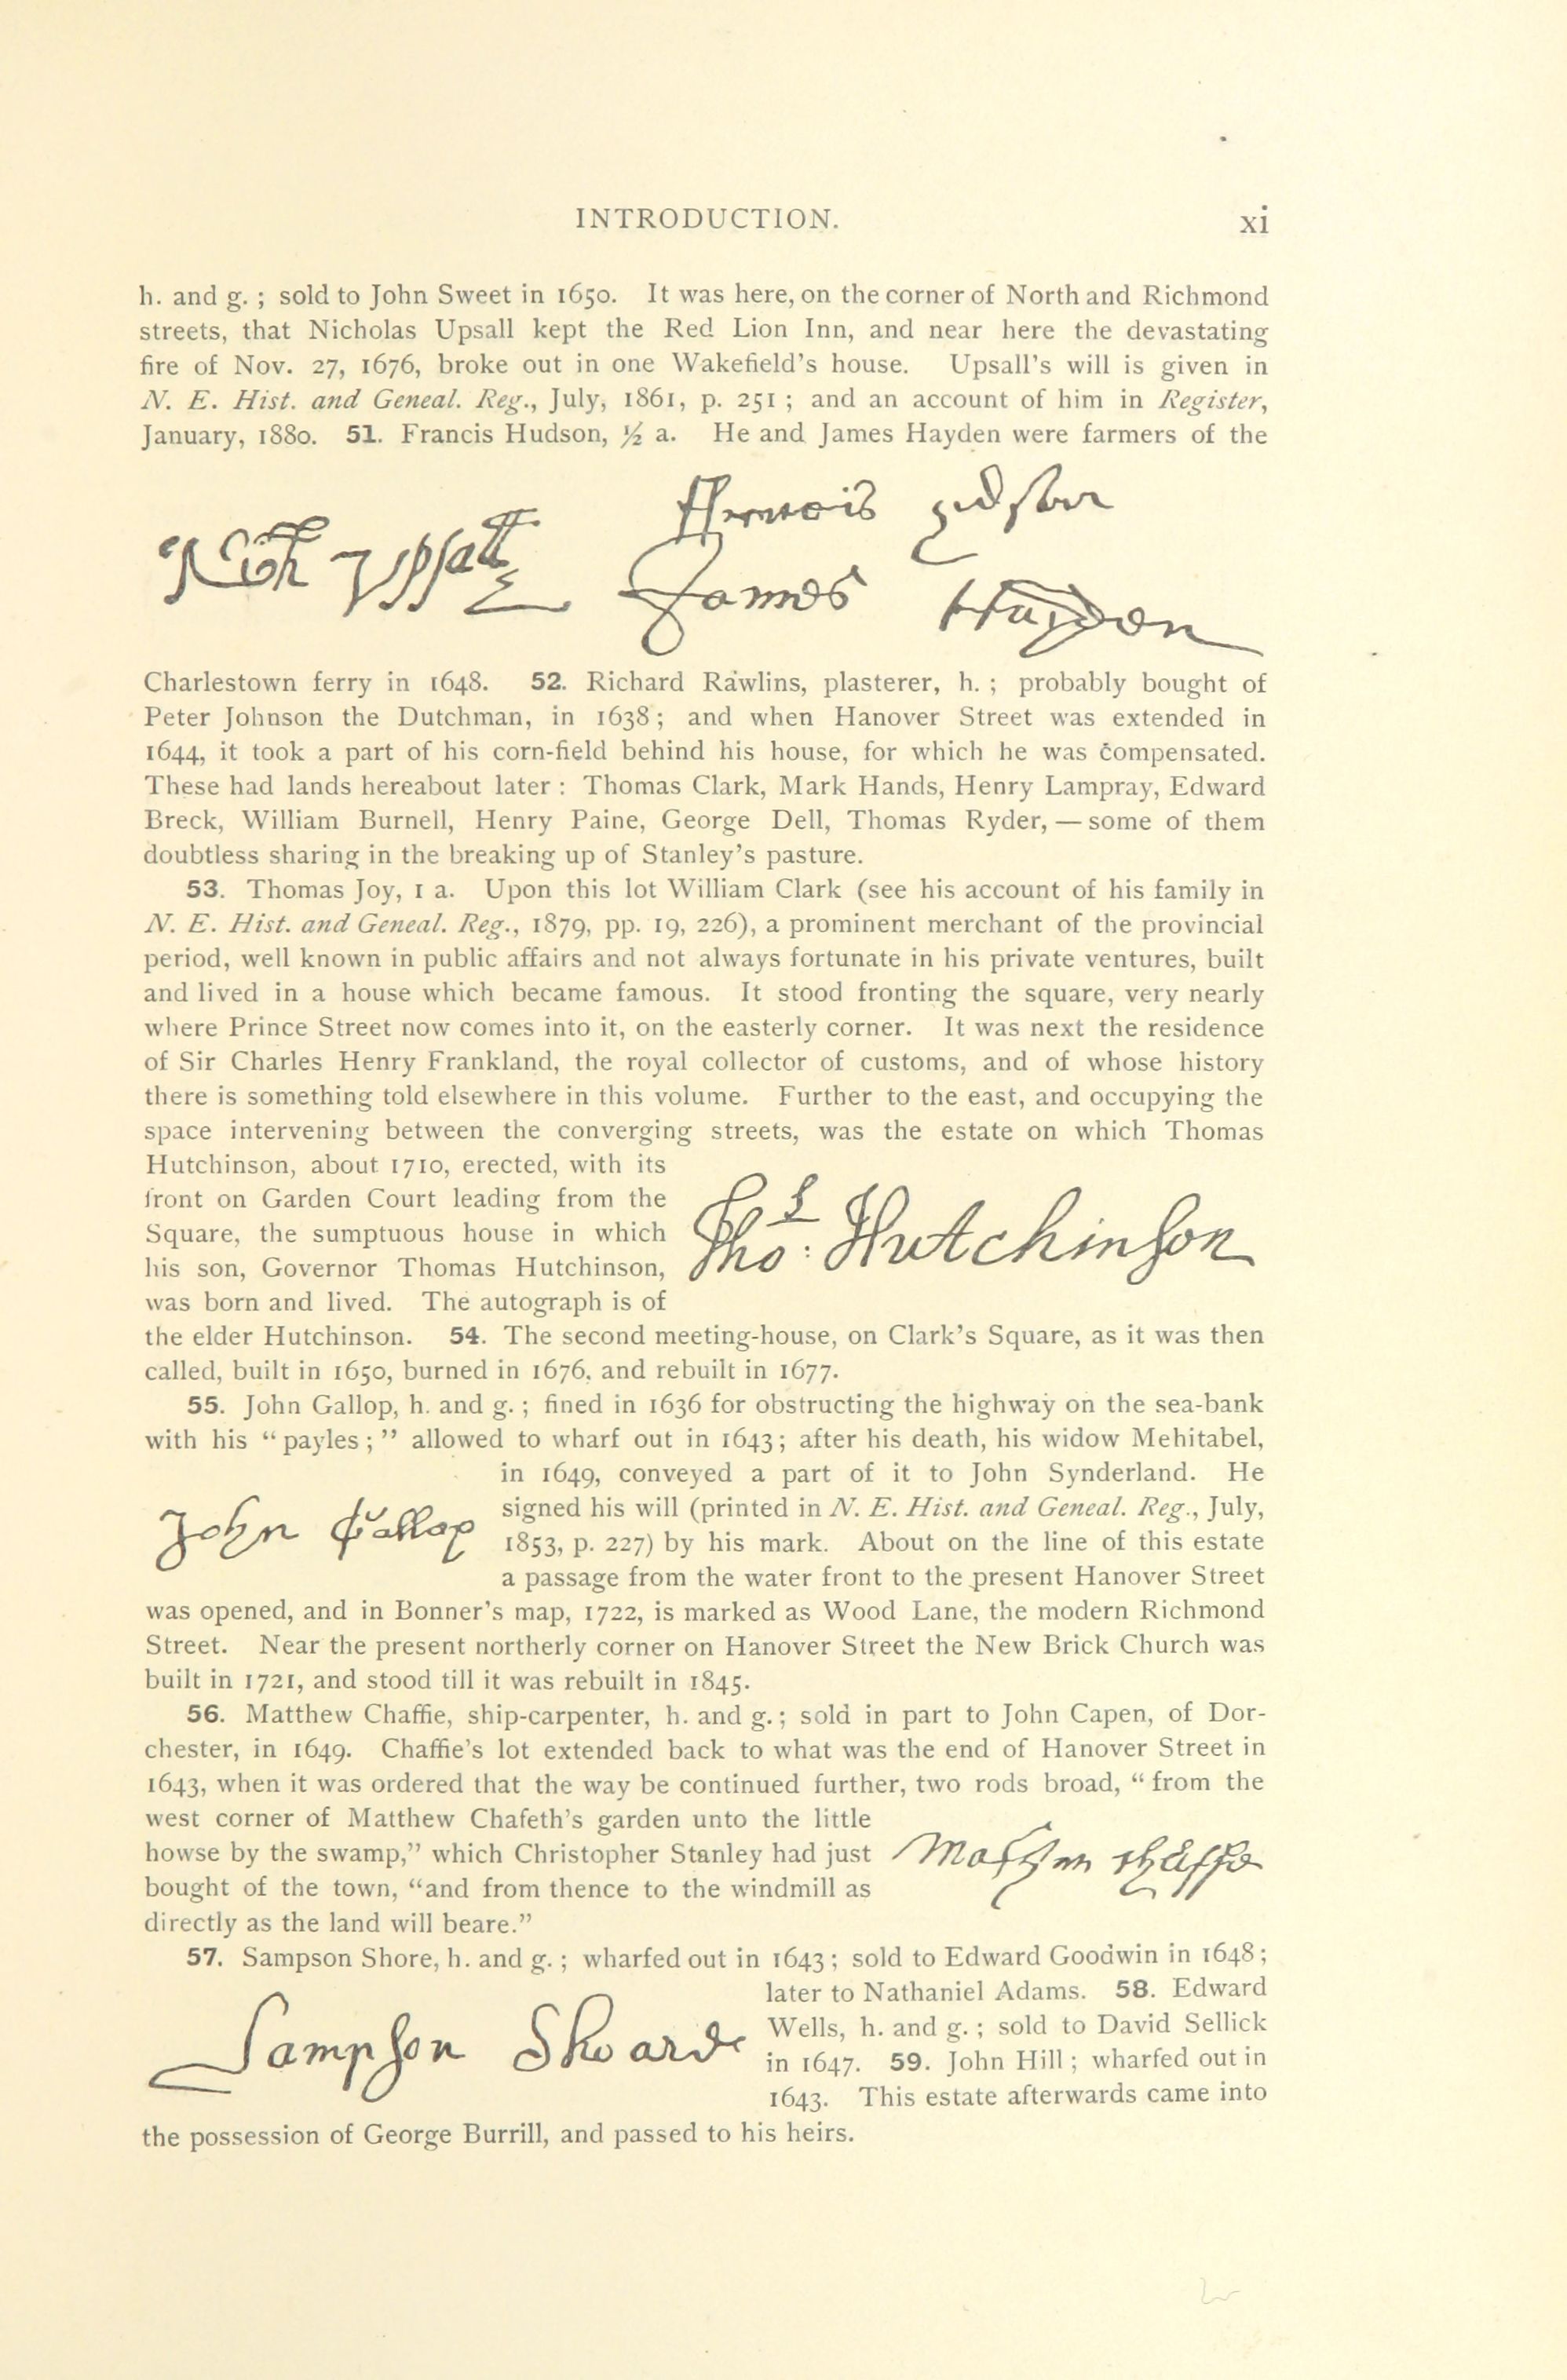 INTRODUCTION. xi
h. and g. ; sold to John Sweet in 1650. It was here, on the corner of North and Richmond
streets, that Nicholas Upsall kept the Red Lion Inn, and near here the devastating
fire of Nov. 27, 1676, broke out in one Wakefield's house. Upsall's will is given in
N. E. Hist. and Geneal. Reg., July, 1861, p. 251 ; and an account of him in Register,
January, 1880. 51. Francis Hudson, ½ a. He and James Hayden were farmers of the
James Hayden
Charlestown ferry in 1648. 52. Richard Rawlins, plasterer, h. ; probably bought of
Peter Johnson the Dutchman, in 1638 ; and when Hanover Street was extended in
1644, it took a part of his corn-field behind his house, for which he was compensated.
These had lands hereabout later : Thomas Clark, Mark Hands, Henry Lampray, Edward
Breck, William Burnell, Henry Paine, George Dell, Thomas Ryder, — some of them
doubtless sharing in the breaking up of Stanley's pasture.
53. Thomas Joy, 1 a. Upon this lot William Clark (see his account of his family in
N. E. Hist. and Geneal. Reg., 1879, pp. 19, 226), a prominent merchant of the provincial
period, well known in public affairs and not always fortunate in his private ventures, built
and lived in a house which became famous. It stood fronting the square, very nearly
where Prince Street now comes into it, on the easterly corner. It was next the residence
of Sir Charles Henry Frankland, the royal collector of customs, and of whose history
there is something told elsewhere in this volume. Further to the east, and occupying the
space intervening between the converging streets, was the estate on which Thomas
Hutchinson, about 1710, erected, with its
front on Garden Court leading from the
Square, the sumptuous house in which
his son, Governor Thomas Hutchinson,
was born and lived. The autograph is of
Tho: Hutchinson
the elder Hutchinson. 54. The second meeting-house, on Clark's Square, as it was then
called, built in 1650, burned in 1676, and rebuilt in 1677.
55. John Gallop, h. and g. ; fined in 1636 for obstructing the highway on the sea-bank
with his “payles ;” allowed to wharf out in 1643 ; after his death, his widow Mehitabel,
in 1649, conveyed a part of it to John Synderland. He
signed his will (printed in N. E. Hist. and Geneal. Reg., July,
1853, p. 227) by his mark. About on the line of this estate
a passage from the water front to the present Hanover Street
John Gallop
was opened, and in Bonner's map, 1722, is marked as Wood Lane, the modern Richmond
Street. Near the present northerly corner on Hanover Street the New Brick Church was
built in 1721, and stood till it was rebuilt in 1845.
56. Matthew Chaffie, ship-carpenter, h. and g. ; sold in part to John Capen, of Dor-
chester, in 1649. Chaffie's lot extended back to what was the end of Hanover Street in
1643, when it was ordered that the way be continued further, two rods broad, “from the
west corner of Matthew Chafeth's garden unto the little
howse by the swamp,” which Christopher Stanley had just
bought of the town, “and from thence to the windmill as
directly as the land will beare.”
57. Sampson Shore, h. and g. ; wharfed out in 1643 ; sold to Edward Goodwin in 1648 ;
later to Nathaniel Adams. 58. Edward
Wells, h. and g. ; sold to David Sellick
in 1647. 59. John Hill ; wharfed out in
1643. This estate afterwards came into
Sampson Shoare
the possession of George Burrill, and passed to his heirs.